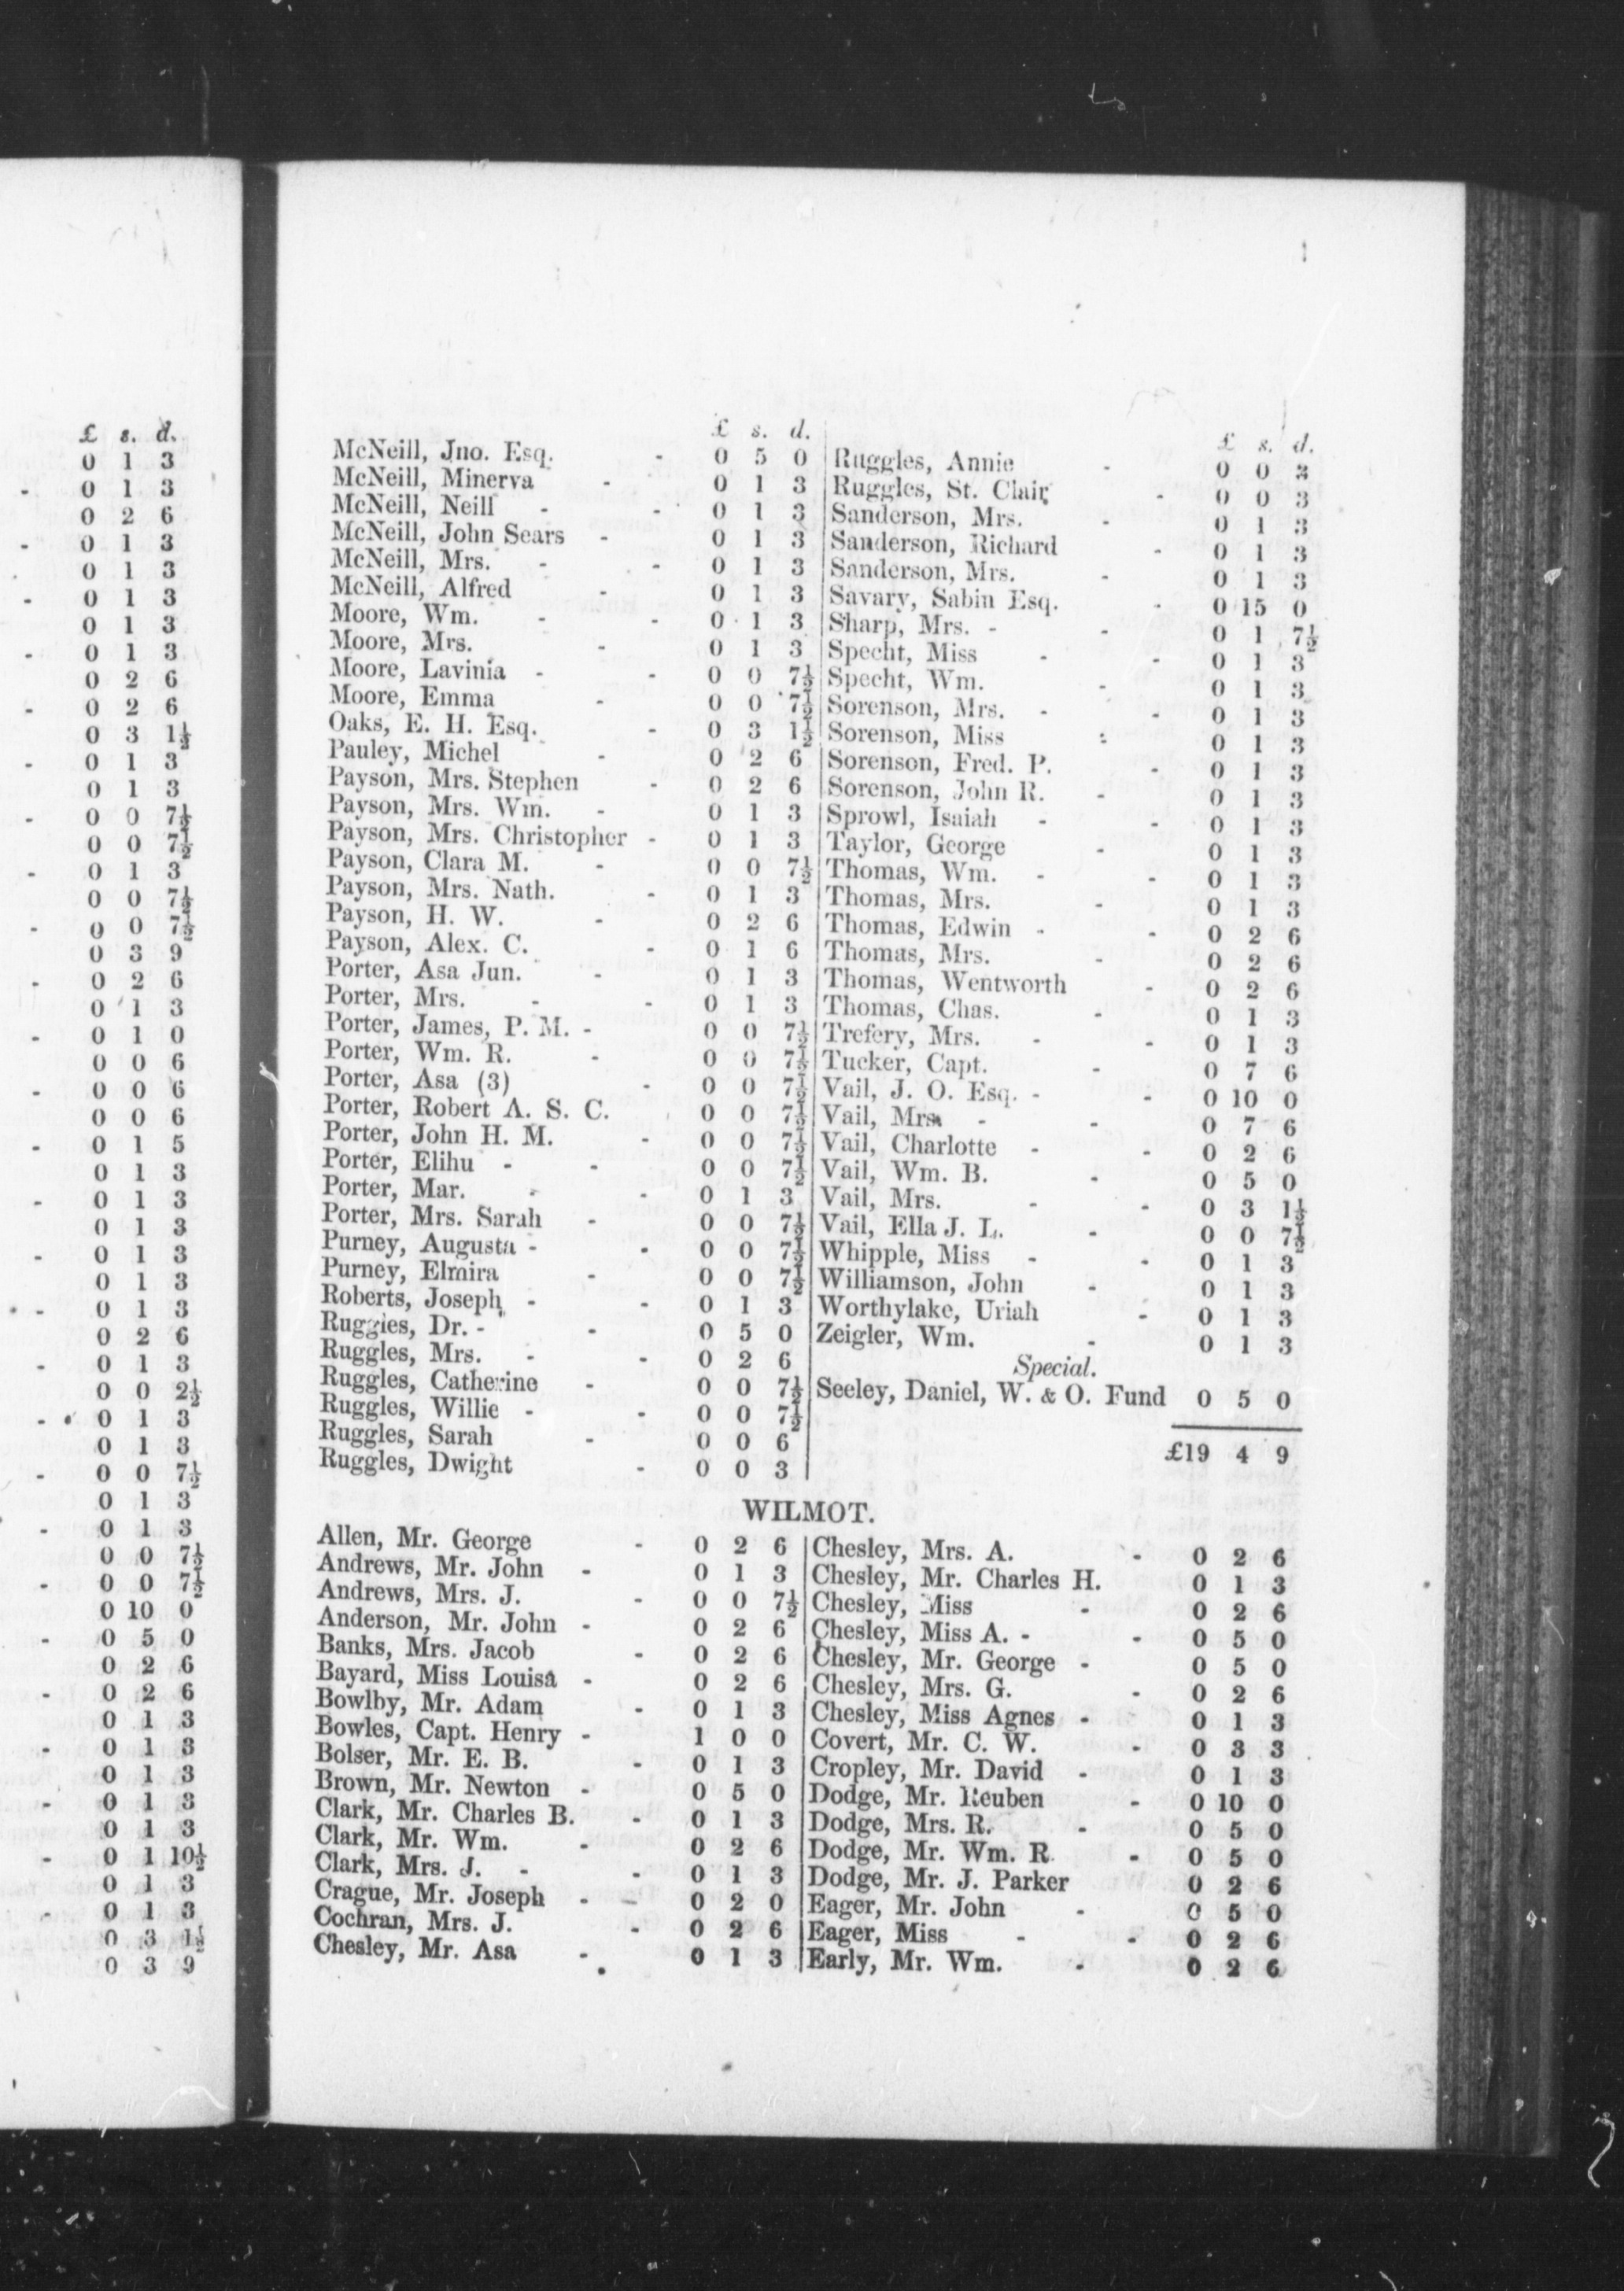 £ s. d.
0 1 3
- 0 1 3
0 2 6
- 0 1 3
0 1 3
- 0 1 3
0 1 3
- 0 1 3
0 2 6
- 0 2 6
0 3 1½
- 0 1 3
0 1 3
- 0 0 7½
0 0 7½
- 0 1 3
0 0 7½
- 0 0 7½
0 3 9
- 0 2 6
0 1 3
- 0 1 0
0 0 6
- 0 0 6
0 0 6
- 0 1 5
0 1 3
- 0 1 3
0 1 3
- 0 1 3
0 1 3
- 0 1 3
0 2 6
- 0 1 3
0 0 2½
- 0 1 3
0 1 3
- 0 0 7½
0 1 3
- 0 1 3
0 0 7½
- 0 0 7½
0 10 0
- 0 5 0
0 2 6
- 0 2 6
0 1 3
- 0 1 3
0 1 3
- 0 1 3
0 1 3
- 0 1 10½
0 1 3
- 0 1 3
0 3 1½
0 3 9
£ s. d.
McNeill, Jno. Esq. - 0 5 0
McNeill, Minerva - 0 1 3
McNeill, Neill - - 0 1 3
McNeill, John Sears - 0 1 3
McNeill, Mrs. - - 0 1 3
McNeill, Alfred - 0 1 3
Moore, Wm. - - 0 1 3
Moore, Mrs. - 0 1 3
Moore, Lavinia - - 0 0 7½
Moore, Emma - 0 0 7½
Oaks, E. H. Esq. - 0 3 1½
Pauley, Michel - 0 2 6
Payson, Mrs. Stephen - 0 2 6
Payson, Mrs. Wm. - 0 1 3
Payson, Mrs. Christopher - 0 1 3
Payson, Clara M. - 0 0 7½
Payson, Mrs. Nath. - 0 1 3
Payson, H. W. - 0 2 6
Payson, Alex. C. - 0 1 6
Porter, Asa Jun. - 0 1 3
Porter, Mrs. - - 0 1 3
Porter, James, P. M. - 0 0 7½
Porter, Wm. R. - 0 0 7½
Porter, Asa (3) - 0 0 7½
Porter, Robert A. S. C. 0 0 7½
Porter, John H. M. - 0 0 7½
Porter, Elihu - - 0 0 7½
Porter, Mar. - - 0 1 3
Porter, Mrs. Sarah - 0 0 7½
Purney, Augusta - - 0 0 7½
Purney, Elmira - 0 0 7½
Roberts, Joseph - - 0 1 3
Ruggies, Dr. - - 0 5 0
Ruggles, Mrs. - - 0 2 6
Ruggles, Catherine - 0 0 7½
Ruggles, Willie - - 0 0 7½
Ruggles, Sarah - 0 0 6
Ruggles, Dwight - 0 0 3
£ s. d.
Ruggles, Annie - 0 0 3
Ruggles, St. Clair - 0 0 3
Sanderson, Mrs. - 0 1 3
Sanderson, Richard - 0 1 3
Sanderson, Mrs. - 0 1 3
Savary, Sabin Esq. - 0 15 0
Sharp, Mrs. - - 0 1 7½
Specht, Miss - - 0 1 3
Specht, Wm. - 0 1 3
Sorenson, Mrs. - - 0 1 3
Sorenson, Miss - 0 1 3
Sorenson, Fred. P. - 0 1 3
Sorenson, John R. - 0 1 3
Sprowl, Isaiah - - 0 1 3
Taylor, George - 0 1 3
Thomas, Wm. - - 0 1 3
Thomas, Mrs. - 0 1 3
Thomas, Edwin - - 0 2 6
Thomas, Mrs. - 0 2 6
Thomas, Wentworth - 0 2 6
Thomas, Chas. - 0 1 3
Trefery, Mrs. - - 0 1 3
Tucker, Capt. - 0 7 6
Vail, J. O. Esq. - - 0 10 0
Vail, Mrs. - - 0 7 6
Vail, Charlotte - - 0 2 6
Vail, Wm. B. - 0 5 0
Vail, Mrs. - - 0 3 1½
Vail, Ella J. L. - 0 0 7½
Whipple, Miss - - 0 1 3
Williamson, John - 0 1 3
Worthylake, Uriah - 0 1 3
Zeigler, Wm. - 0 1 3
Special.
Seeley, Daniel, W. & O. Fund 0 5 0
£19 4 9
WILMOT.
Allen, Mr. George - 0 2 6
Andrews, Mr. John - 0 1 3
Andrews, Mrs. J. - 0 0 7½
Anderson, Mr. John - 0 2 6
Banks, Mrs. Jacob - 0 2 6
Bayard, Miss Louisa - 0 2 6
Bowlby, Mr. Adam - 0 1 3
Bowles, Capt. Henry - 1 0 0
Bolser, Mr. E. B. - 0 1 3
Brown, Mr. Newton - 0 5 0
Clark, Mr. Charles B. - 0 1 3
Clark, Mr. Wm. - 0 2 6
Clark, Mrs. J. - - 0 1 3
Crague, Mr. Joseph - - 0 2 0
Cochran, Mrs. J. - 0 2 6
Chesley, Mr. Asa - 0 1 3
Chesley, Mrs. A. - 0 2 6
Chesley, Mr. Charles H. 0 1 3
Chesley, Miss - 0 2 6
Chesley, Miss A. - - 0 5 0
Chesley, Mr. George - 0 5 0
Chesley, Mrs. G. - 0 2 6
Chesley, Miss Agnes - 0 1 3
Covert, Mr. C. W. - 0 3 3
Cropley, Mr. David - 0 1 3
Dodge, Mr. Reuben - 0 10 0
Dodge, Mrs. R. - 0 5 0
Dodge, Mr. Wm. R - 0 5 0
Dodge, Mr. J. Parker 0 2 6
Eager, Mr. John - 0 5 0
Eager, Miss - - 0 2 6
Early, Mr. Wm. - 0 2 6